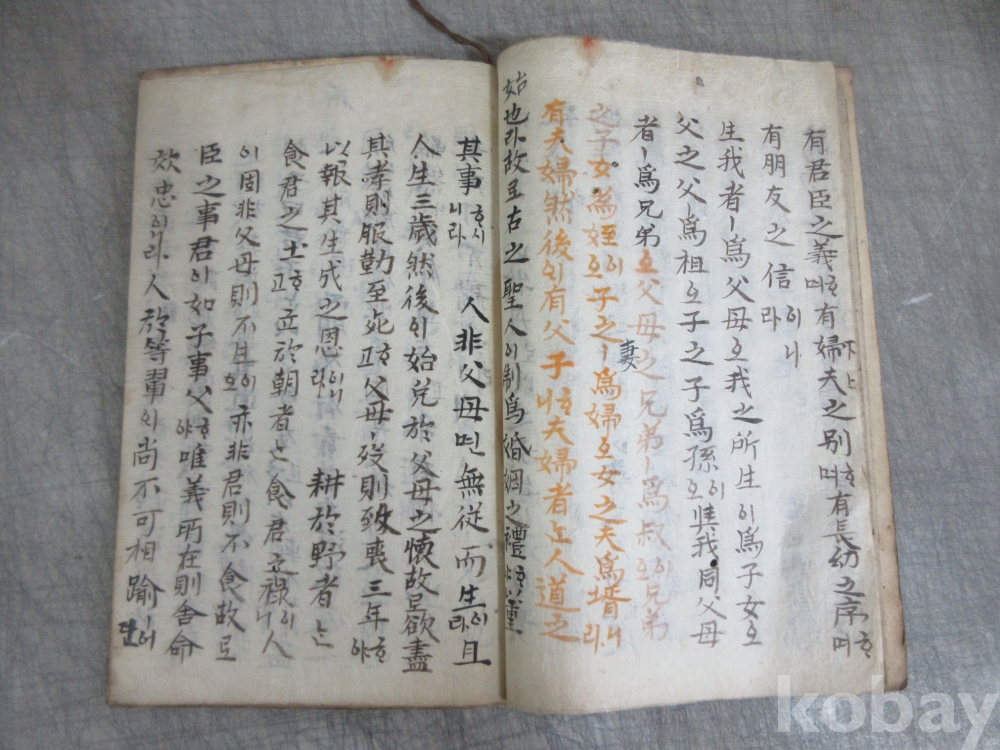 有君臣之義며ᄒᆞ有婦夫之别며ᄒᆞ有長幼之序며ᄒᆞ
下上
有朋友之信이니라
生我者ㅣ爲父母오我之所生이爲子女오
父之父爲祖오子之子爲孫이오與我同父母
者ㅣ爲兄弟오父母之兄弟ㅣ爲叔이오兄弟
之子女爲姪이오子之ㅣ爲婦오女之夫爲壻니라
妻
有夫婦然後에有父子니ᄒᆞ夫婦者는人道之
始也라故로古之聖人이制爲婚姻之禮ᄒᆞ야以重
其事ᄒᆞ시니라 人非父母면無從而生이라且
人生三歲然後에始免於父母之懷故로欲盡
其孝則服勤至死ᄒᆞ고父母ㅣ歿則致喪三年ᄒᆞ야
以報其生成之恩이니라 耕於野者는
食君之土ᄒᆞ고立於朝者는食君之祿이니人
이固非父母則不生이오亦非君則不食故로
臣之事君이如子事父ᄒᆞ야唯義所在則舍命
效忠이라人於等輩에尚不可相踰
kobay